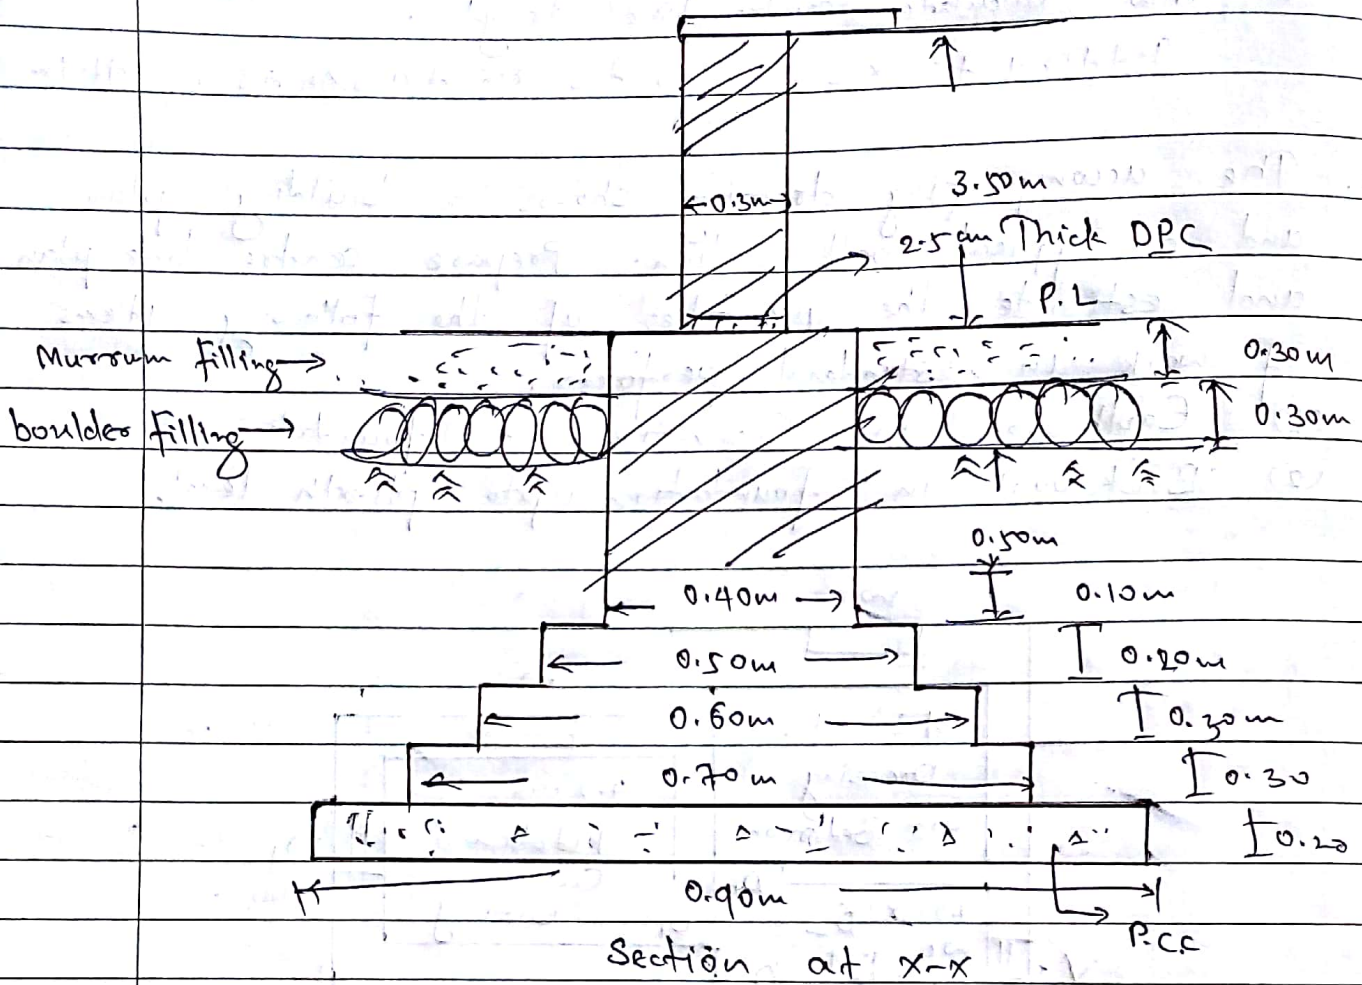 0.3m
3.50m
2.5 cm Thick DPC
P.L
Murrum filling
0.30m
boulder filling
0.30m
0.50m
0.40m
0.10m
0.50m
0.20m
0.60m
0.30m
0.70m
0.30
0.20
0.90m
P.C.C
Section at x-x